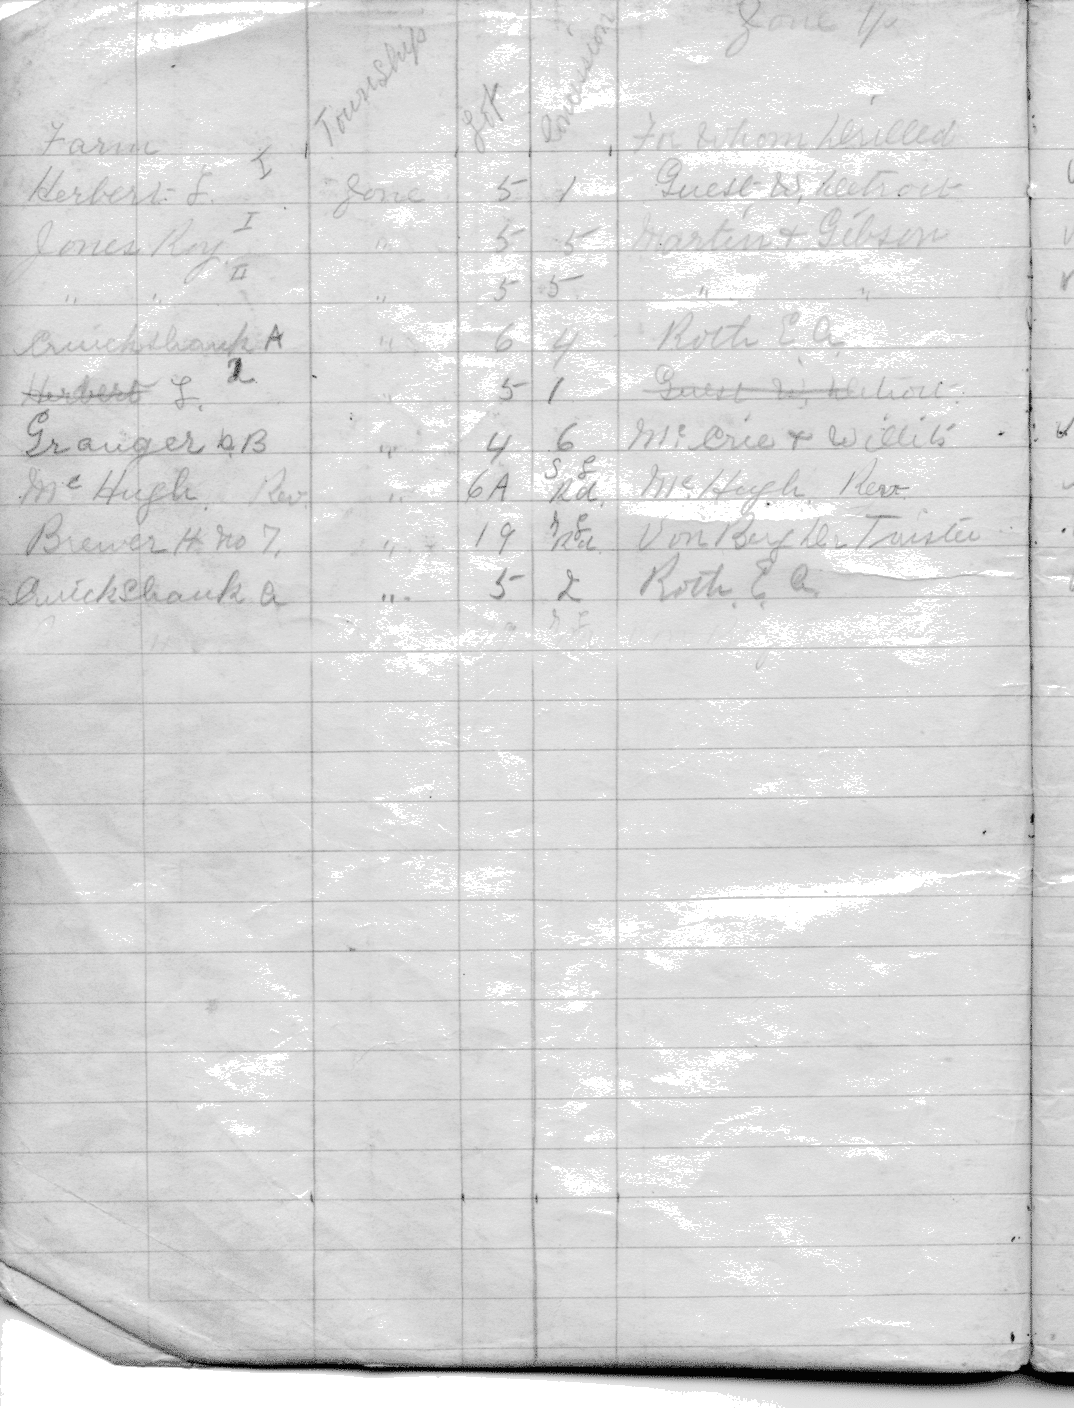 Zone Tp
Farm Township Lot Concession For Whom Drilled
Herbert L. I Zone 5 1 Guest W. Detroit
Jones Roy I " 5 5 Martin & Gibson
" " II " 5 5 " "
Cruickshank A " 6 4 Roth E. A.
Herbert L. 2 " 5 1 Guest W. Detroit
Granger D.B " 4 6 Mc Crie & Willits
Mc Hugh Rev. " 6A S L Rd. Mc Hugh Rev.
Brewer H No 7. " 19 Rd. Von Berg Dr
Cruickshank A " 5 2 Roth E. A.